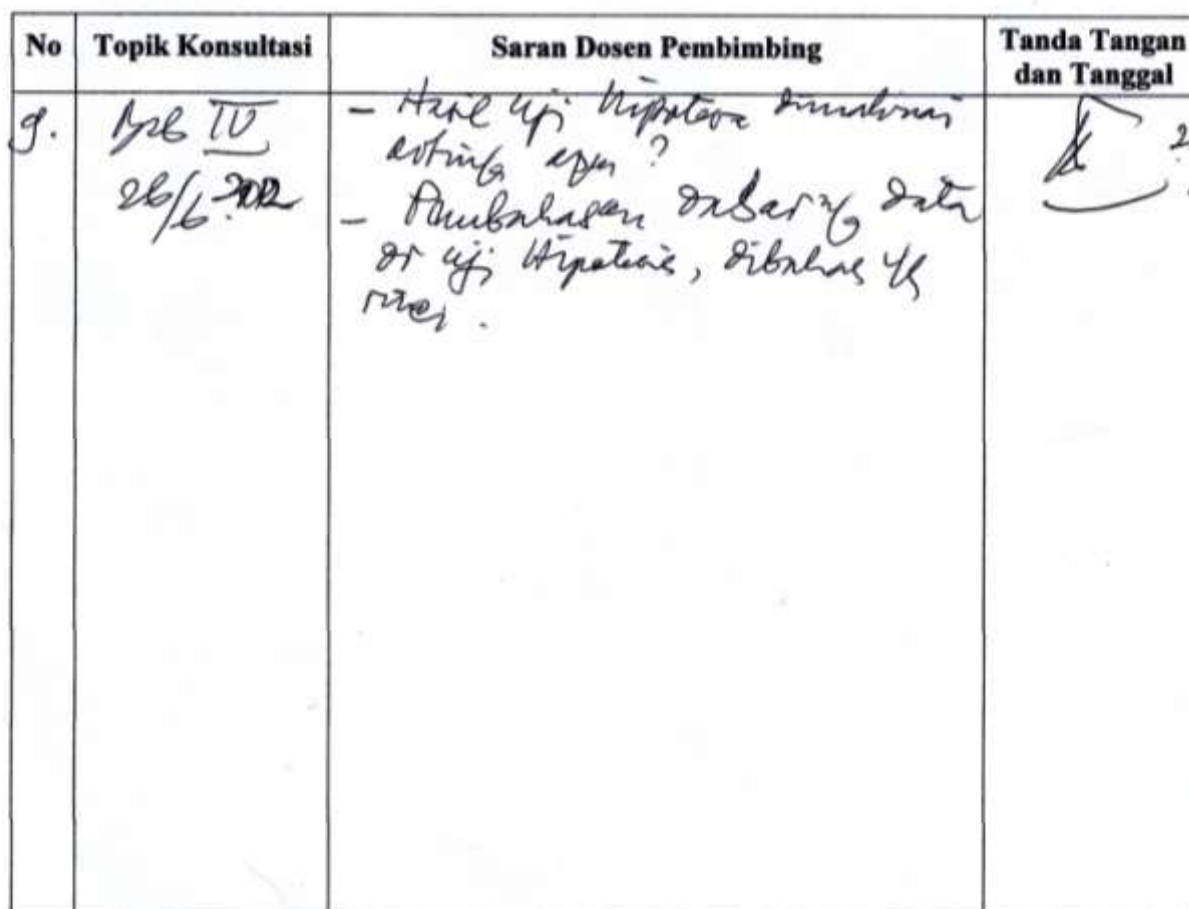 No Topik Konsultasi Saran Dosen Pembimbing Tanda Tangan
dan Tanggal
9. Bab IV
26/6 2012
- Hasil uji hipotesa dimaknai
artinya apa?
- Pembahasan data
dr uji Hipotesis, dibahas yg
rinci.